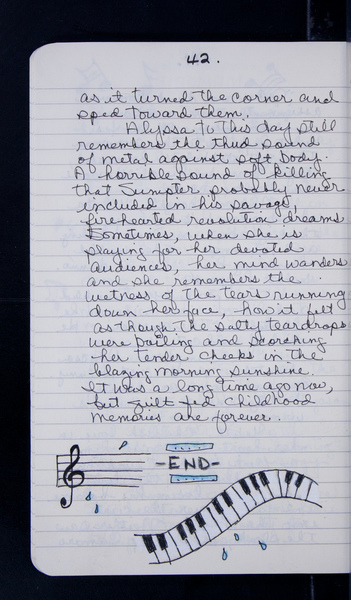 42.
as it turned the corner and
sped toward them.
Alyssa to this day still
remembers the thud sound
of metal against soft body.
A horrible sound of killing
that Sumpter probably never
included in his savage,
firehearted revolution dreams.
Sometimes, when she is
playing for her devoted
audiences, her mind wanders
and she remembers the
wetness of the tears running
down her face, how it felt
as though the salty teardrops
were boiling and scorching
her tender cheeks in the
blazing morning sunshine.
It was a long time ago now,
but guilt fed childhood
memories are forever.
-END-